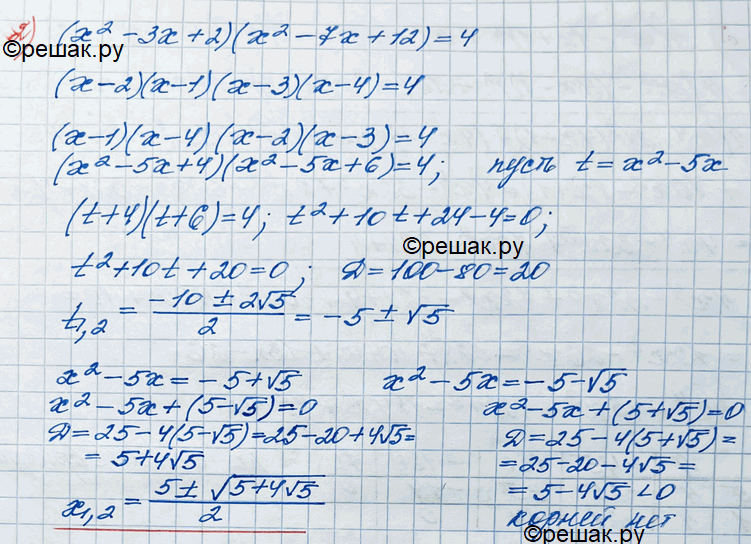 2) (x² - 3x + 2)(x² - 7x + 12) = 4
©решак.ру
(x-2)(x-1)(x-3)(x-4) = 4
(x-1)(x-4)(x-2)(x-3) = 4
(x² - 5x + 4)(x² - 5x + 6) = 4; пусть t = x² - 5x
(t+4)(t+6) = 4; t² + 10t + 24 - 4 = 0;
©решак.ру
t² + 10t + 20 = 0; Д = 100 - 80 = 20
t₁,₂ = (-10 ± 2√5)/2 = -5 ± √5
x² - 5x = -5 + √5
x² - 5x + (5 - √5) = 0
Д = 25 - 4(5 - √5) = 25 - 20 + 4√5 =
= 5 + 4√5
x₁,₂ = (5 ± √(5 + 4√5))/2
x² - 5x = -5 - √5
x² - 5x + (5 + √5) = 0
Д = 25 - 4(5 + √5) =
= 25 - 20 - 4√5 =
= 5 - 4√5 < 0
корней нет
©решак.ру